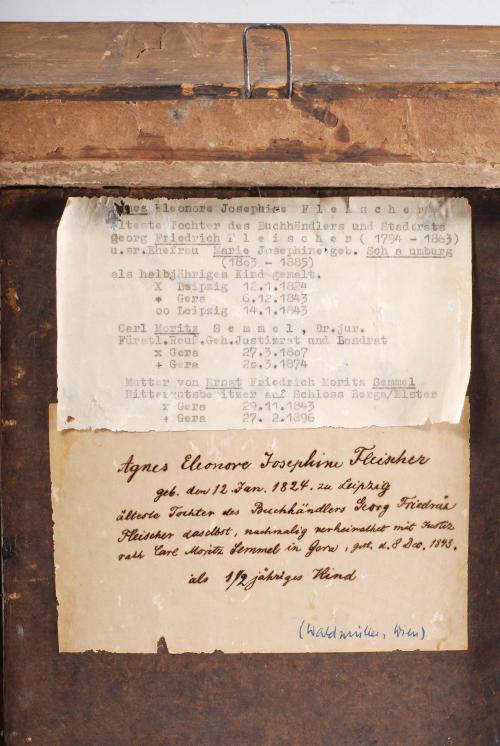 Agnes Eleonore Josephine F l e i s c h e r
älteste Tochter des Buchhändlers und Stadtrats
Georg Friedrich F l e i s c h e r ( 1794 - 1863)
u.sr.Ehefrau Marie Josephine geb. Sch a umburg
(1803 - 1885)
als halbjähriges Kind gemalt.
X Leipzig 12.1.1824
+ Gera 6.12.1843
oo Leipzig 14.1.1843
Carl Moritz S e m m e l , Dr.jur.
Fürstl.Reuß.Geh.Justizrat und Landrat
x Gera 27.3.1807
+ Gera 20.3.1874
Mutter von Ernst Friedrich Moritz Semmel
Rittergutsbesitzer auf Schloss Berga/Elster
x Gera 29.11.1843
+ Gera 27. 2.1896
Agnes Eleonore Josephine Fleischer
geb. den 12. Jan. 1824. zu Leipzig
älteste Tochter des Buchhändlers Georg Friedrich
Fleischer daselbst, nachmalig verheirathet mit Justiz
rath Carl Moritz Semmel in Gera, gest. d. 8 Dec. 1843.
als 1/2 jähriges Kind
(Waldmüller, Wien)